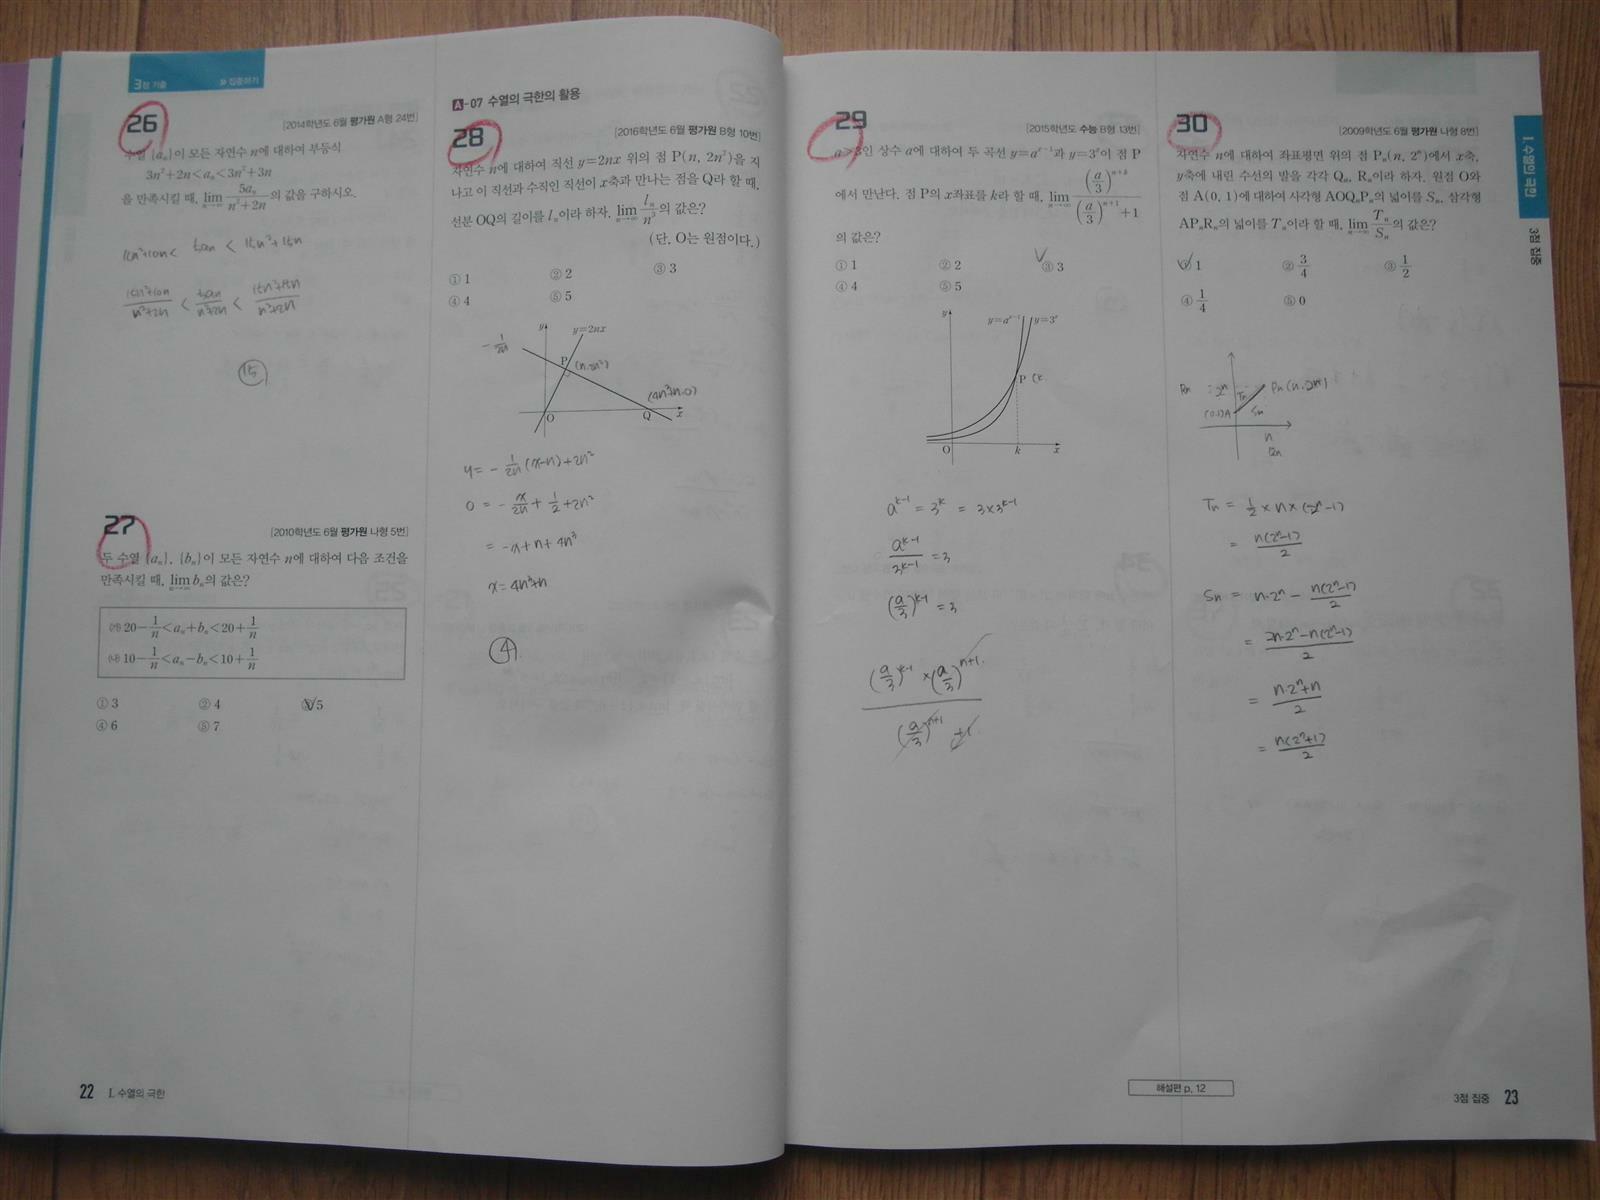 3점 기출 » 집중하기
26
[2014학년도 6월 평가원 A형 24번]
수열 {aₙ}이 모든 자연수 n에 대하여 부등식
3n²+2n<aₙ<3n²+3n
을 만족시킬 때, lim n→∞ 5aₙ/(n²+2n)의 값을 구하시오.
15n²+10n < 5an < 15n²+15n
(15n²+10n)/(n²+2n) < 5an/(n²+2n) < (15n²+15n)/(n²+2n)
15
27
[2010학년도 6월 평가원 나형 5번]
두 수열 {aₙ}, {bₙ}이 모든 자연수 n에 대하여 다음 조건을
만족시킬 때, lim n→∞ bₙ의 값은?
㈎ 20-1/n<aₙ+bₙ<20+1/n
㈏ 10-1/n<aₙ-bₙ<10+1/n
① 3 ② 4 ③ 5
④ 6 ⑤ 7
22 I. 수열의 극한
A-07 수열의 극한의 활용
28
[2016학년도 6월 평가원 B형 10번]
자연수 n에 대하여 직선 y=2nx 위의 점 P(n, 2n²)을 지
나고 이 직선과 수직인 직선이 x축과 만나는 점을 Q라 할 때,
선분 OQ의 길이를 lₙ이라 하자. lim n→∞ lₙ/n³의 값은?
(단, O는 원점이다.)
① 1 ② 2 ③ 3
④ 4 ⑤ 5
y y=2nx
-1/2n
P (n, 2n²)
(4n³+n, 0)
O Q x
y = -1/2n (x-n)+2n²
0 = -x/2n + 1/2 + 2n²
= -x+n+4n³
x = 4n³+n
④
29
[2015학년도 수능 B형 13번]
a>3인 상수 a에 대하여 두 곡선 y=aˣ⁻¹과 y=3ˣ이 점 P
에서 만난다. 점 P의 x좌표를 k라 할 때, lim n→∞ (a/3)ⁿ⁺ᵏ/((a/3)ⁿ⁺¹+1)
의 값은?
① 1 ② 2 ③ 3
④ 4 ⑤ 5
y y=aˣ⁻¹ y=3ˣ
P (k
O k x
aᵏ⁻¹ = 3ᵏ = 3×3ᵏ⁻¹
aᵏ⁻¹/3ᵏ⁻¹ = 3
(a/3)ᵏ⁻¹ = 3
(a/3)ᵏ⁻¹ × (a/3)ⁿ⁺¹
(a/3)ⁿ⁺¹ +1
해설편 p. 12
I. 수열의 극한
3점 집중
30
[2009학년도 6월 평가원 나형 8번]
자연수 n에 대하여 좌표평면 위의 점 Pₙ(n, 2ⁿ)에서 x축,
y축에 내린 수선의 발을 각각 Qₙ, Rₙ이라 하자. 원점 O와
점 A(0, 1)에 대하여 사각형 AOQₙPₙ의 넓이를 Sₙ, 삼각형
APₙRₙ의 넓이를 Tₙ이라 할 때, lim n→∞ Tₙ/Sₙ의 값은?
① 1 ② 3/4 ③ 1/2
④ 1/4 ⑤ 0
Rn 2ⁿ Tn
(0,1)A Sn
n
Tn = 1/2 × n × (2ⁿ-1)
= n(2ⁿ-1)/2
Sn = n·2ⁿ - n(2ⁿ-1)/2
= (2n·2ⁿ-n(2ⁿ-1))/2
= (n·2ⁿ+n)/2
= n(2ⁿ+1)/2
3점 집중 23